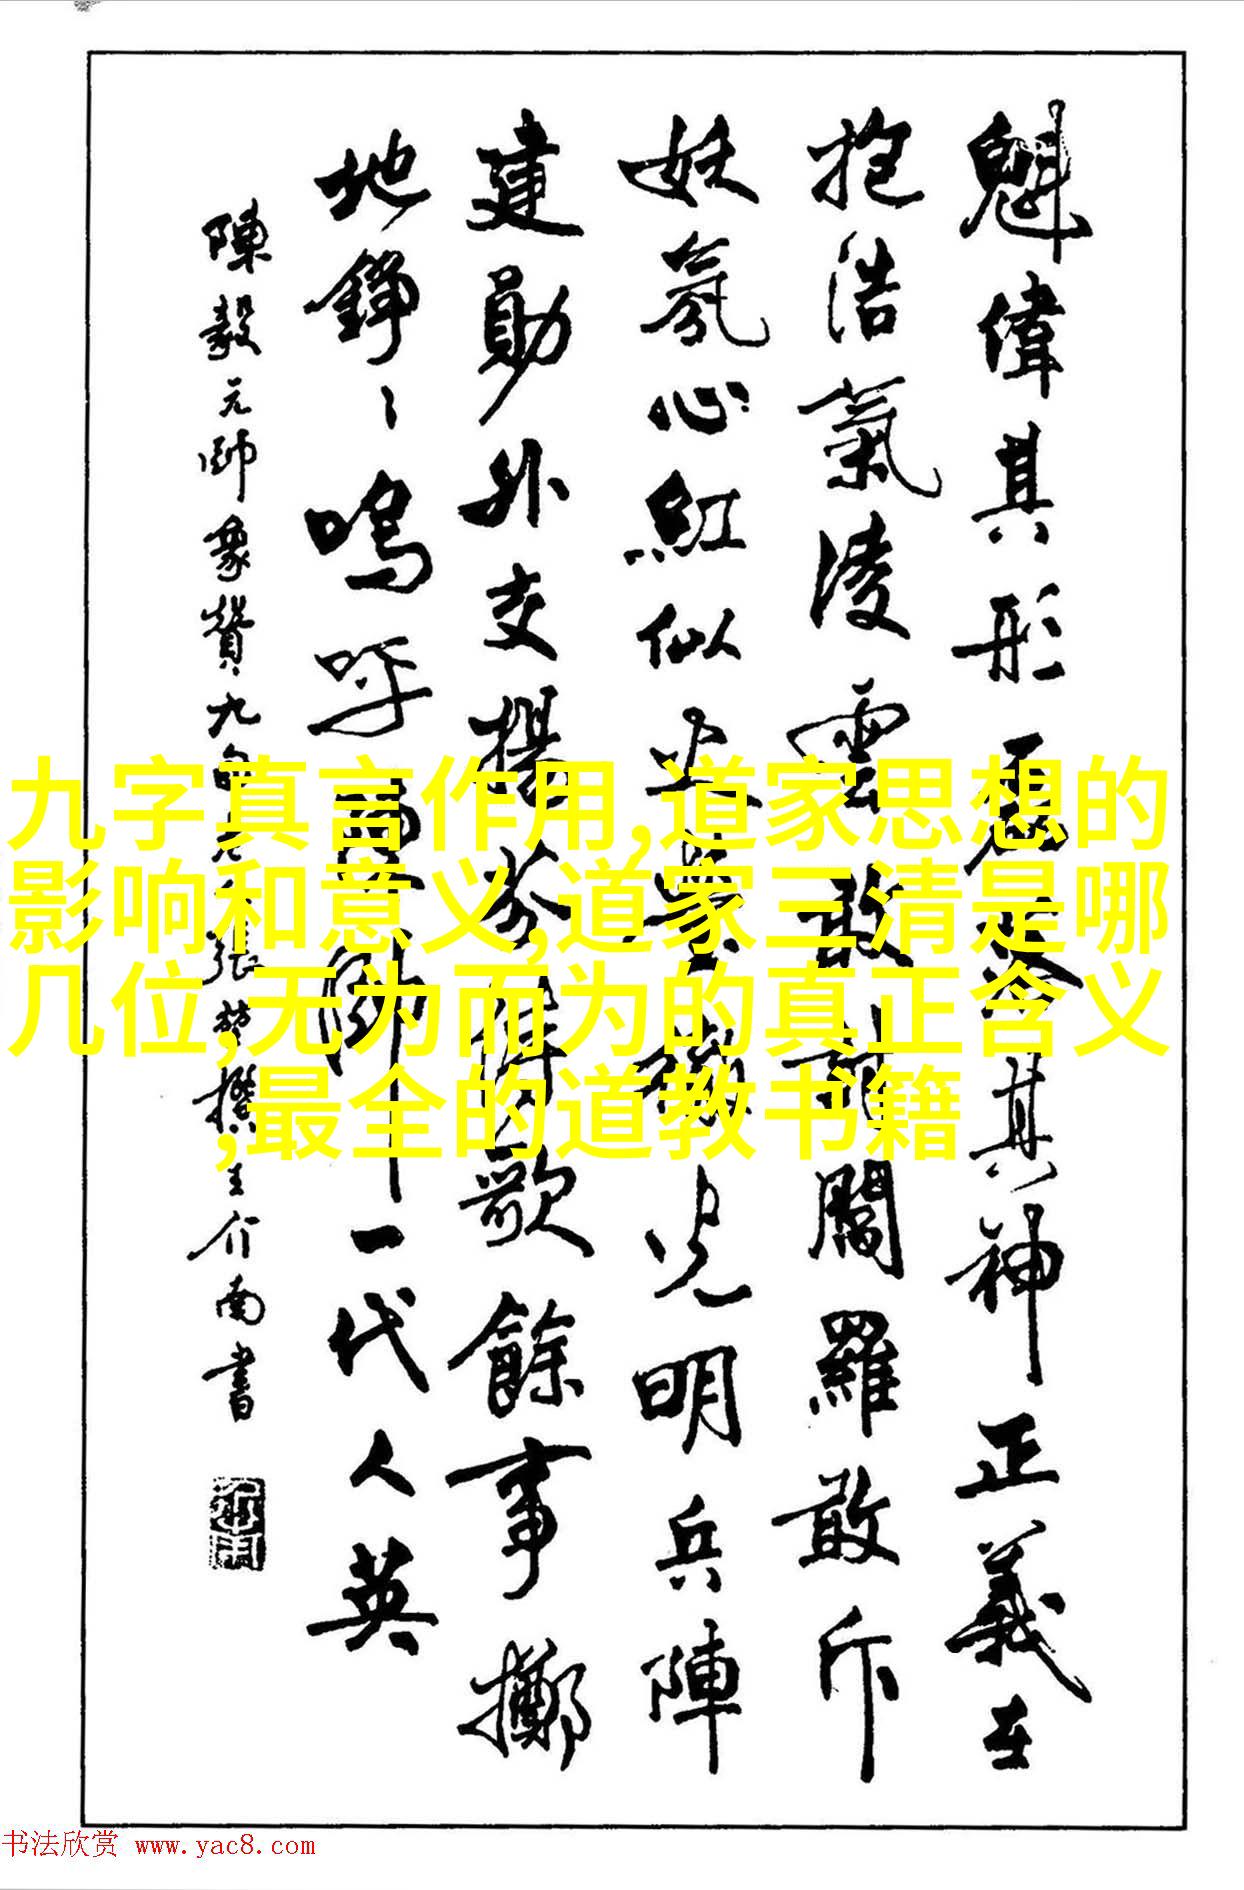 魁偉其形忠旋其神正義在
抱浩氣凌雲敢討閻羅敢斥
妖氛心紅似火
光明兵陣
建勛外交揚芬
歌餘事擲
地錚錚嗚呼
一代人英
陳毅元帥象贊九
撰王介南書
九字真言作用,道家思想的
影响和意义,道家三清是哪
几位,无为而为的真正含义
,最全的道教书籍
书法欣赏 www.yac8.com